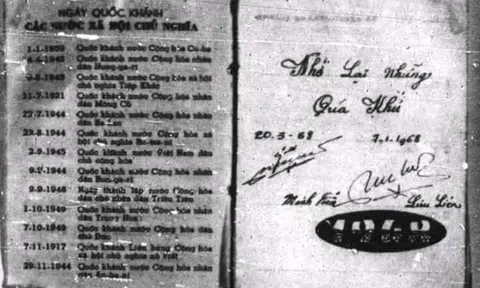 NGÀY QUỐC KHÁNH
CÁC NƯỚC XÃ HỘI CHỦ NGHĨA
1.1.1959 Quốc khánh nước Cộng hòa Cu-ba
4.4.1945 Quốc khánh nước Cộng hòa nhân
dân Hung-ga-ri
9.5.1945 Quốc khánh nước Cộng hòa xã hội
chủ nghĩa Tiệp Khắc
11.7.1921 Quốc khánh nước Cộng hòa nhân
dân Mông Cổ
22.7.1944 Quốc khánh nước Cộng hòa nhân
dân Ba Lan
23.8.1944 Quốc khánh nước Cộng hòa xã
hội chủ nghĩa Ru-ma-ni
2.9.1945 Quốc khánh nước Việt Nam dân
chủ cộng hòa
9.9.1944 Quốc khánh nước Cộng hòa nhân
dân Bun-ga-ri
9.9.1948 Ngày thành lập nước Cộng hòa
dân chủ nhân dân Triều Tiên
1.10.1949 Quốc khánh nước Cộng hòa nhân
dân Trung Hoa
7.10.1949 Quốc khánh nước Cộng hòa dân
chủ Đức
7.11.1917 Quốc khánh Liên bang Cộng hòa
xã hội chủ nghĩa xô viết
29.11.1944 Quốc khánh nước Cộng hòa nhân
dân An-ba-ni
Nhớ Lại Những
Quá Khứ
20.3-68 7.1.1968
Liên
1968